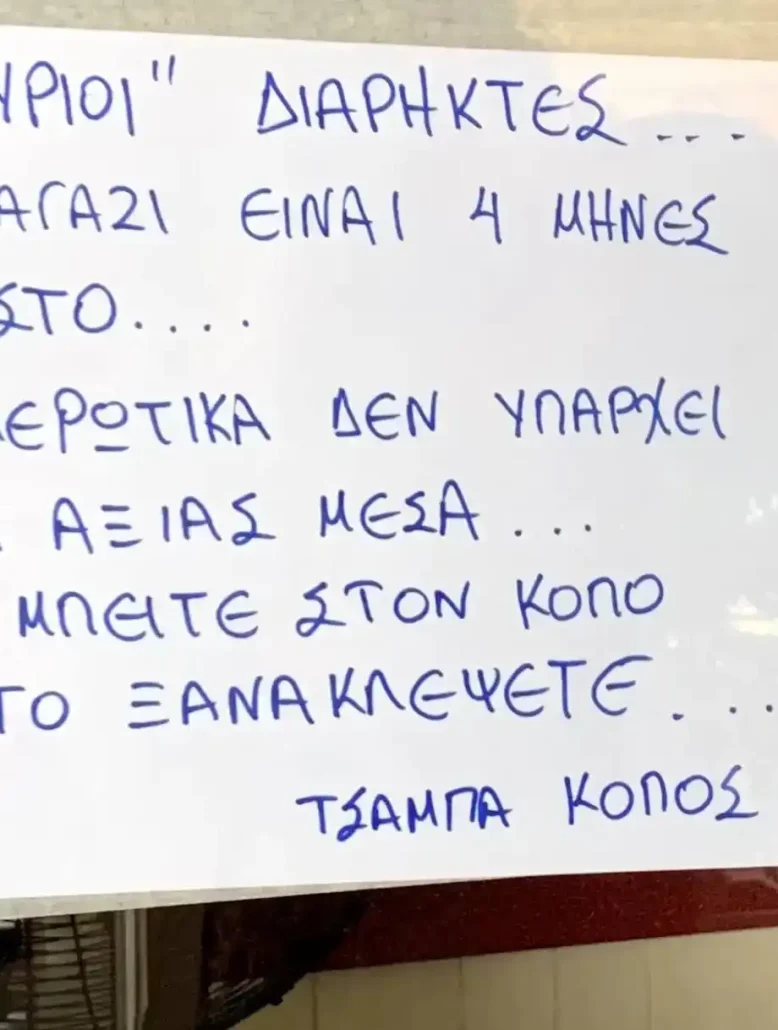 ΥΡΙΟΙ" ΔΙΑΡΗΚΤΕΣ...
ΑΓΑΖΙ ΕΙΝΑΙ 4 ΜΗΝΕΣ
ΣΤΟ....
ΕΡΩΤΙΚΑ ΔΕΝ ΥΠΑΡΧΕΙ
ΑΞΙΑΣ ΜΕΣΑ...
ΜΠΕΙΤΕ ΣΤΟΝ ΚΟΠΟ
ΤΟ ΞΑΝΑΚΛΕΨΕΤΕ...
ΤΣΑΜΠΑ ΚΟΠΟΣ